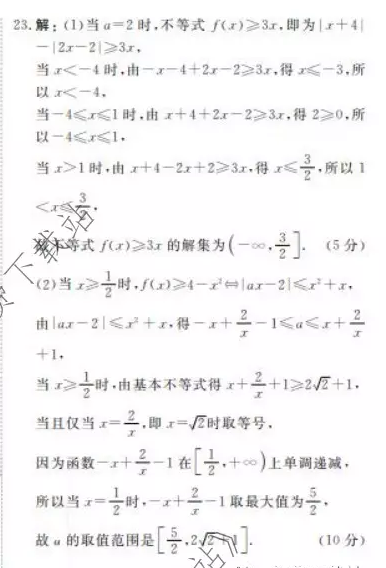 23.解:(1)当a=2时,不等式 f(x)≥3x,即为|x+4|
-|2x-2|≥3x,
当x<-4时,由-x-4+2x-2≥3x,得x≤-3,所
以x<-4,
当-4≤x≤1时,由x+4+2x-2≥3x,得2≥0,所
以-4≤x≤1,
当x>1时,由x+4-2x+2≥3x,得x≤3/2,所以1
<x≤3/2,
故不等式 f(x)≥3x的解集为(-∞,3/2]. (5分)
(2)当x≥1/2时,f(x)≥4-x²⇔|ax-2|≤x²+x,
由|ax-2|≤x²+x,得-x+2/x-1≤a≤x+2/x
+1,
当x≥1/2时,由基本不等式得x+2/x+1≥2√2+1,
当且仅当x=2/x,即x=√2时取等号,
因为函数-x+2/x-1在[1/2,+∞)上单调递减,
所以当x=1/2时,-x+2/x-1取最大值为5/2,
故a的取值范围是[5/2,2√2+1]. (10分)
下载站